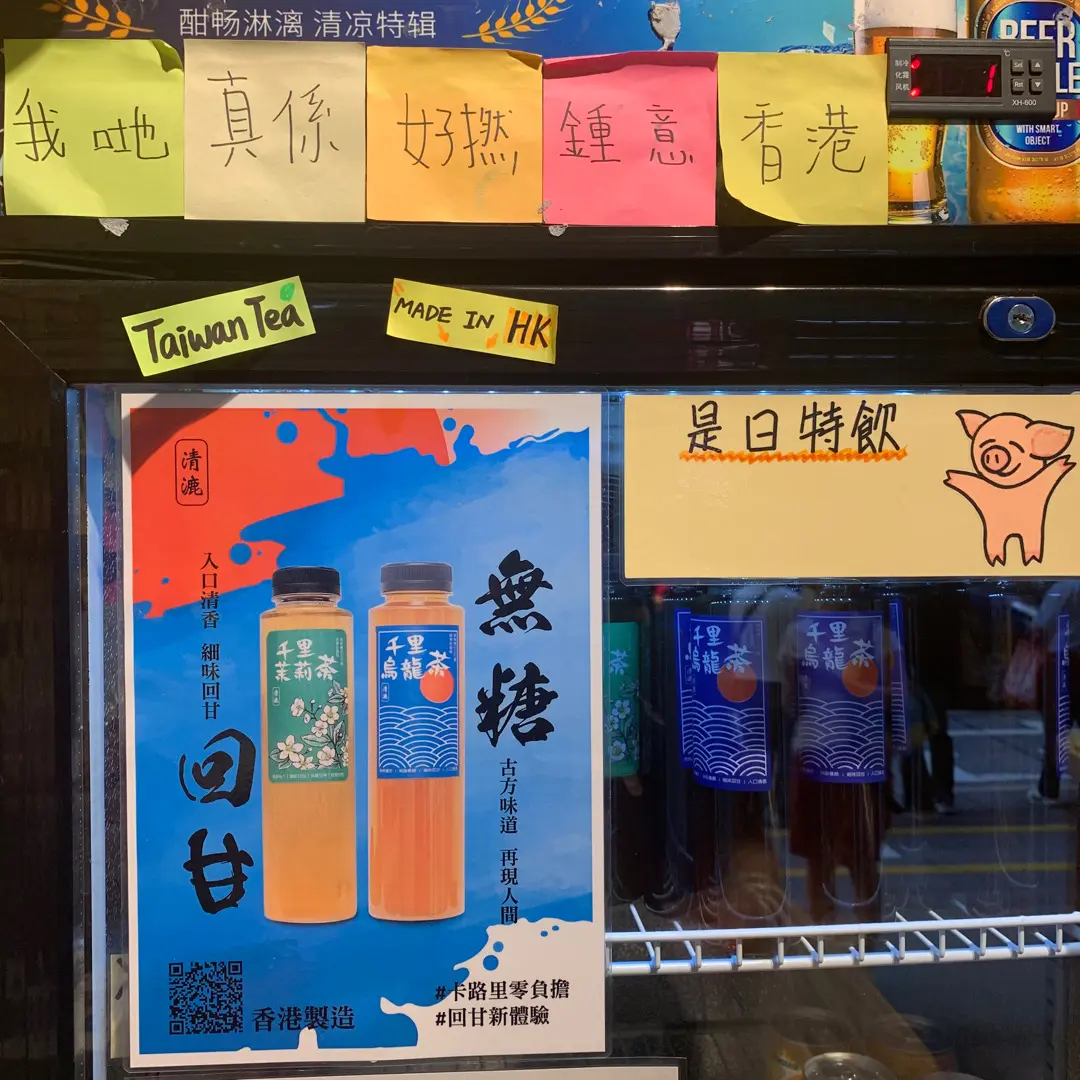 酣畅淋漓 清凉特辑
我哋
真係
好撚
鍾意
香港
制冷
化霜
风机
℃
Set
Rst
XH-600
BEER
WITH SMART
OBJECT
Taiwan Tea
MADE IN HK
是日特飲
清漉
入口清香 細味回甘
回甘
無糖
古方味道 再現人間
千里
茉莉茶
千里
烏龍茶
千里
烏龍茶
千里
烏龍茶
香港製造
#卡路里零負擔
#回甘新體驗